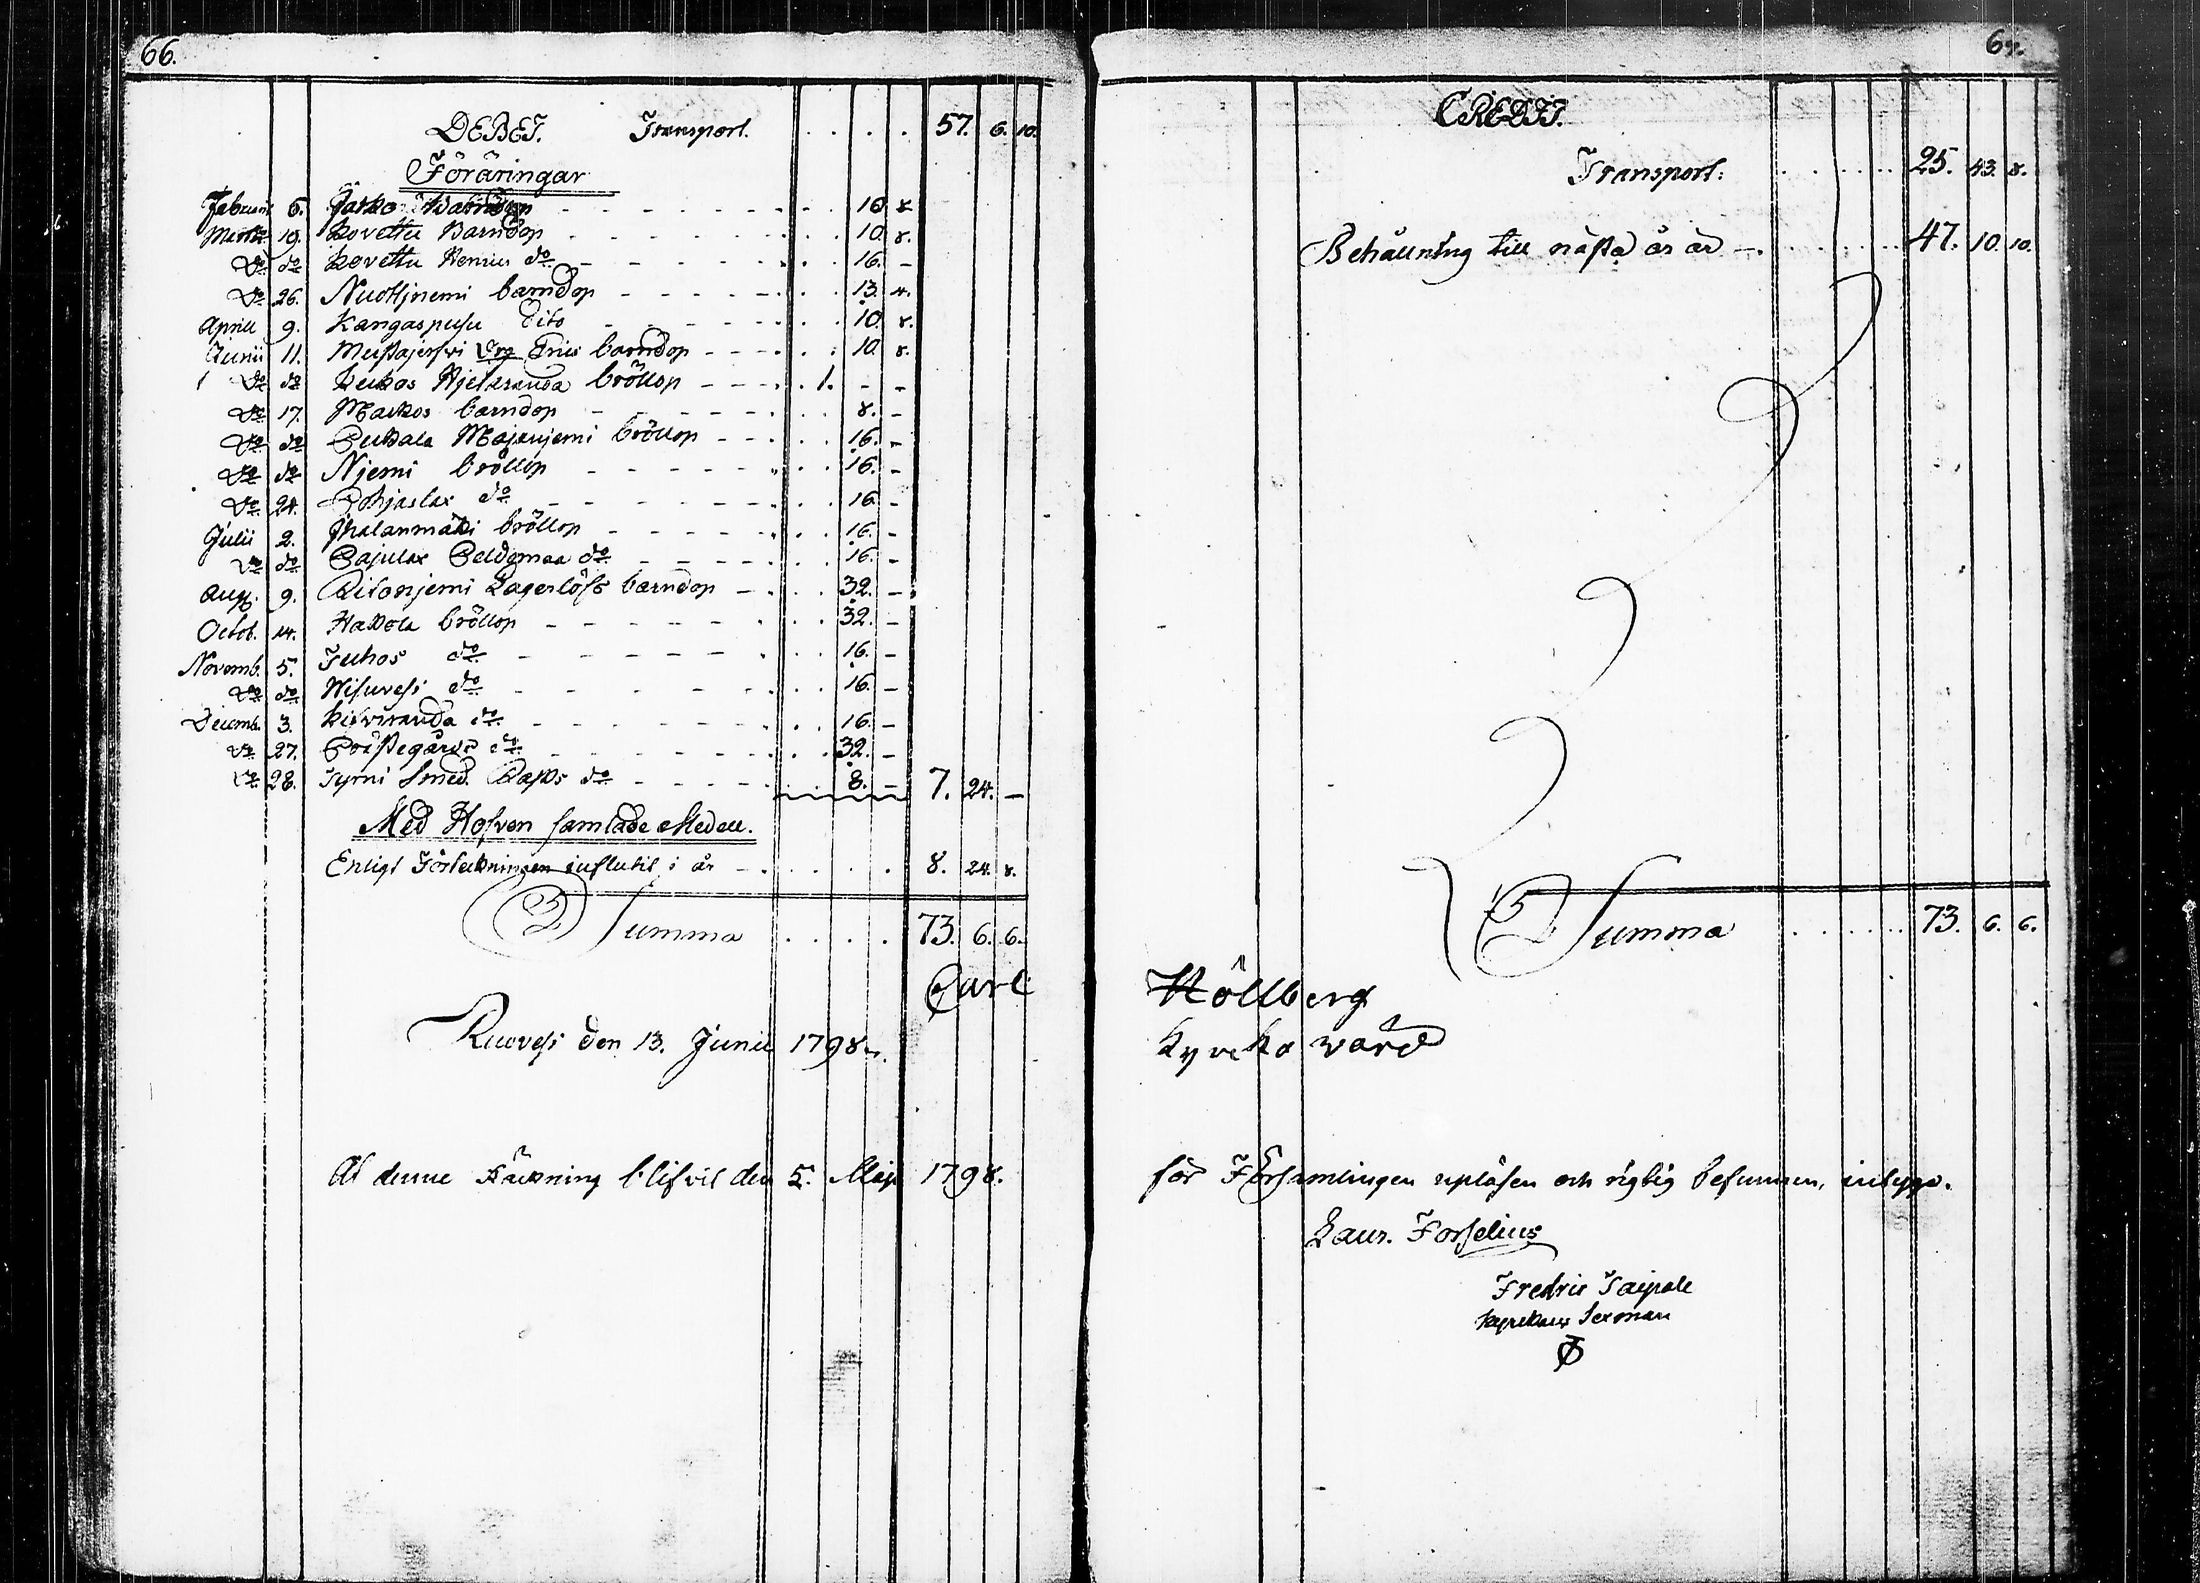 66.
DEBET. Transport. 57. 6. 10.
Föräringar
Februarii 5. Jäsko 10. 8.
Martii 19. Kovettu Barndop 10. 8.
Do do Kovettu do 16. -
Do 26. Nuottjnemi barndop 13. 4.
Aprill 9. Kangaspusu dito 10. 8.
Junii 11. Mustajerfvi barndop 10. 8.
Do do bröllop 1. - -
Do 17. Markos barndop 8. -
Do do Pukala Majanjemi bröllop 16. -
Do do Njemi bröllop 16. -
Do 24. Pohjaslax do 16. -
Julii 2. bröllop 16. -
Do do Pajulax do 16. -
Aug. 9. Ritonjemi Lagerlöfs barndop 32. -
Octob. 14. bröllop 32. -
Novemb. 5. Juhos do 16. -
Do do Visuvesi do 16. -
Decemb. 3. Kivirauda do 16. -
Do 27. Prästegårds do 32. -
Do 28. Tyrni Smed. do 8. - 7. 24. -
Med Hofven samlade Medell.
Enligt Förteckningen influtit i år 8. 24. 8.
Summa 73. 6. 6.
Carl
Ruovesi den 13. Junii 1798.
At denne Räckning blifvit den 5. Maji 1798.
67.
CREDIT.
Transport: 25. 43. 8.
Behållning till nästa år är 47. 10. 10.
Summa 73. 6. 6.
Höllberg
Kyrcko värd
för Församlingen upläsen och rigtig befunnen, intyga.
Laur. Forselius
Fredric Taipale
Kyrckans Sexman